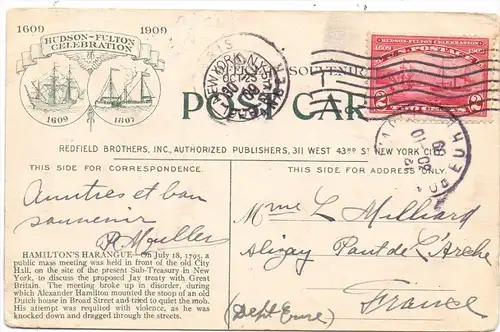 1609 1909
HUDSON-FULTON
CELEBRATION
1609 1807
SOUVENIR
POST CARD
HUDSON-FULTON CELEBRATION
1609 1909
POSTAGE
2 2
NEW YORK, N.Y.
OCT 23
09
REDFIELD BROTHERS, INC., AUTHORIZED PUBLISHERS, 311 WEST 43RD ST NEW YORK CITY
THIS SIDE FOR CORRESPONDENCE.
THIS SIDE FOR ADDRESS ONLY.
et bon
souvenir
HAMILTON'S HARANGUE—On July 18, 1795, a
public mass meeting was held in front of the old City
Hall, on the site of the present Sub-Treasury in New
York, to discuss the proposed Jay treaty with
Great Britain. The meeting broke up in disorder, during
which Alexander Hamilton mounted the stoop of an old
Dutch house in Broad Street and tried to quiet the mob.
His attempt was requited with violence, as he was
knocked down and dragged through the streets.
Mme L. Milliard
Alizay Pont de L'Arche
(Dept Eure) France